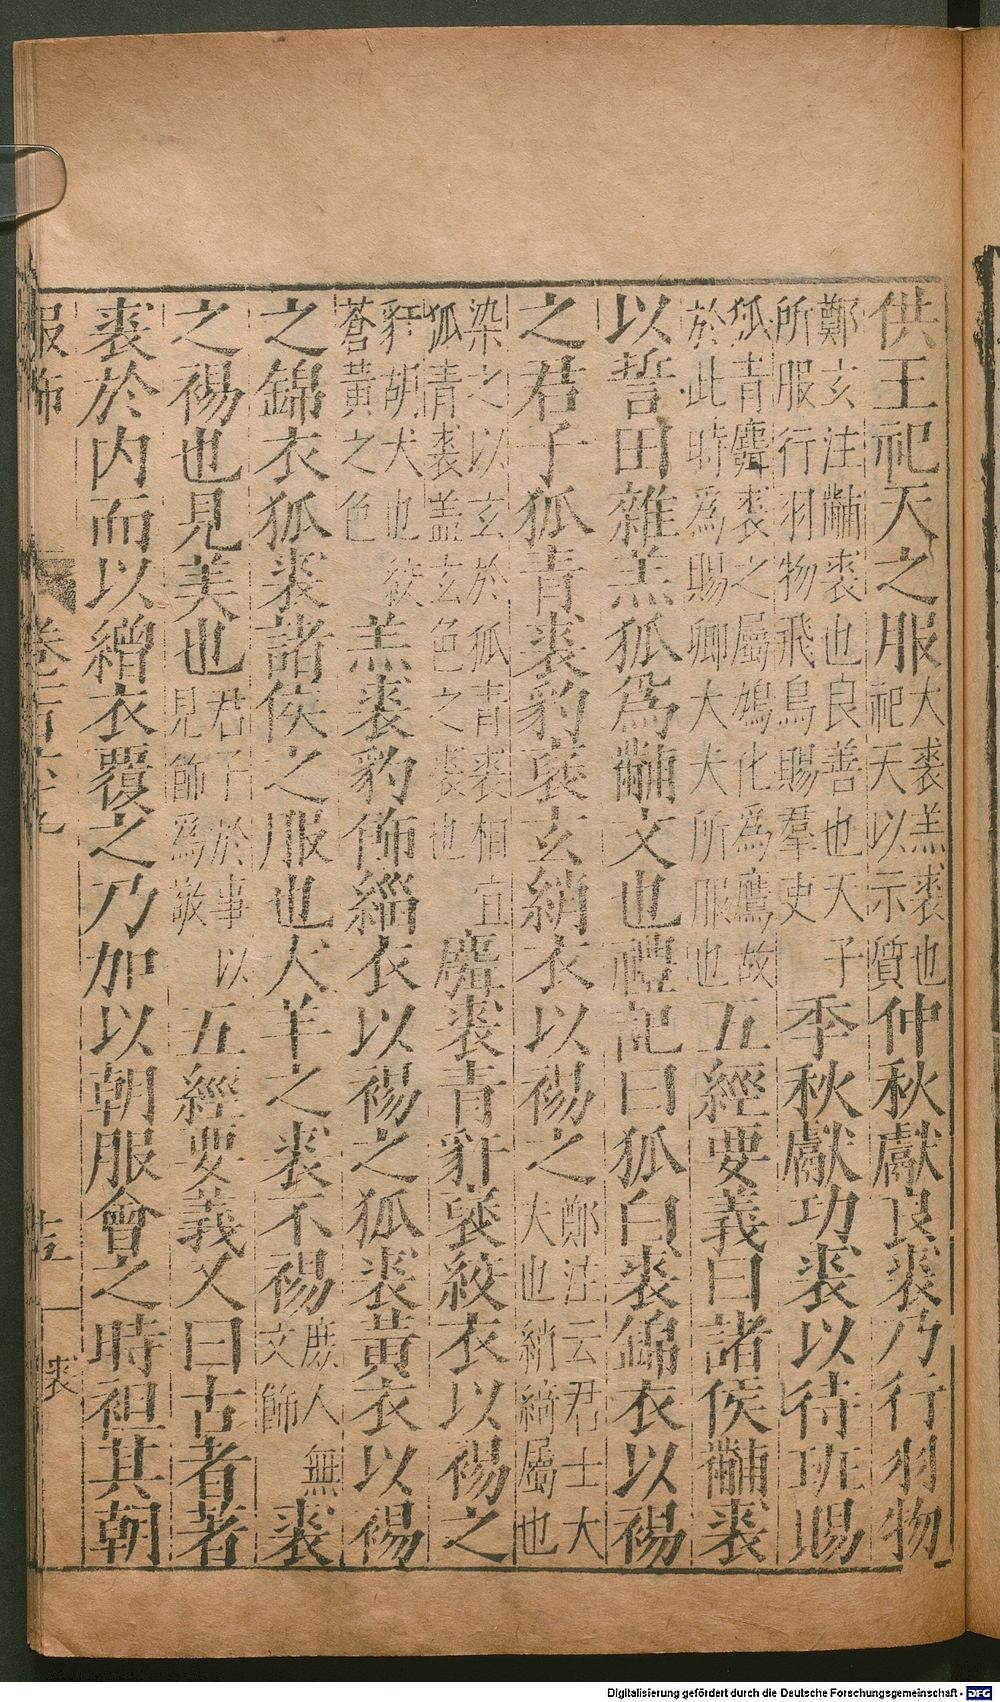 供王祀天之服大裘羔裘也祀天以示質仲秋獻良裘乃行羽物
鄭玄注黼裘也良善也天子所服行羽物飛鳥賜羣吏季秋獻功裘以待班賜
狐青麛裘之屬鳩化為鷹故於此時爲賜卿大夫所服也五經要義曰諸侯黼裘
以誓田雜羔狐爲黼文也禮記曰狐白裘錦衣以裼
之君子狐青裘豹褎玄綃衣以裼之鄭注云君士大夫也綃綺屬也
染之以玄於狐青裘相宜狐青裘盖玄色之裘也麛裘青豻褎絞衣以裼之
豻胡犬也絞蒼黃之色羔裘豹飾緇衣以裼之狐裘黃衣以裼
之錦衣狐裘諸侯之服也犬羊之裘不裼庶人無文飾裘
之裼也見美也君子於事以見飾爲敬五經要義又曰古者著
裘於内而以繒衣覆之乃加以朝服會之時袒其朝
服飾 卷 裘
Digitalisierung gefördert durch die Deutsche Forschungsgemeinschaft - DFG